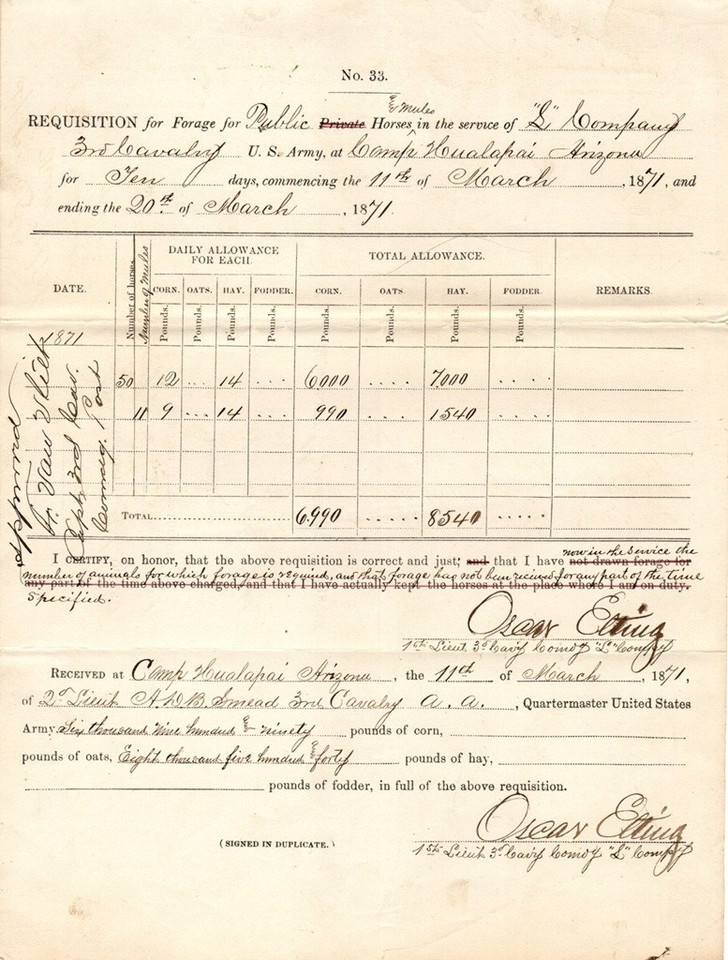 No. 33.
& mules
REQUISITION for Forage for Public Private Horses in the service of "L" Company
3rd Cavalry U. S. Army, at Camp Hualapai Arizona
for Ten days, commencing the 11th of March, 1871, and
ending the 20th of March, 1871.
DATE. Number of horses. Number of Mules DAILY ALLOWANCE FOR EACH. TOTAL ALLOWANCE. REMARKS.
CORN. OATS. HAY. FODDER. CORN. OATS. HAY. FODDER.
Pounds. Pounds. Pounds. Pounds. Pounds.
1871
50 12 ... 14 ... 6000 .... 7000 ....
11 9 ... 14 ... 990 .... 1540 ....
TOTAL 6990 ..... 8540 ....
Approved
Van Vliet
Capt. 3rd Cav.
Comdg. Post
now in the service the
I CERTIFY, on honor, that the above requisition is correct and just; and that I have not drawn forage for
number of animals for which forage is required, and that forage has not been received for any part of the time
any part of the time above charged, and that I have actually kept the horses at the place where I am on duty.
specified.
Oscar Elting
1st Lieut 3d Cavy Comdg "L" Compy
RECEIVED at Camp Hualapai Arizona, the 11th of March, 1871,
of 2d Lieut A.D.B. Smead 3rd Cavalry A. A., Quartermaster United States
Army, Six thousand nine hundred & ninety pounds of corn,
pounds of oats, Eight thousand five hundred & forty pounds of hay,
pounds of fodder, in full of the above requisition.
Oscar Elting
1st Lieut 3d Cavy Comdg "L" Compy
(SIGNED IN DUPLICATE.)